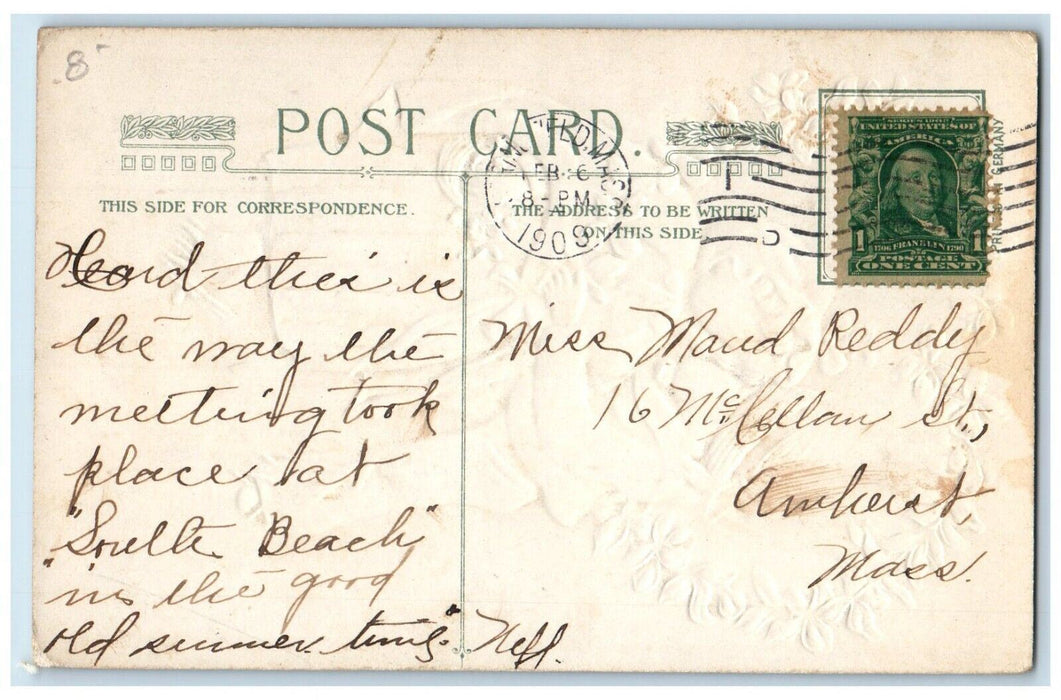 8-
POST CARD.
FEB 6
8 - PM
1909
MASS.
SERIES 1902
UNITED STATES OF
AMERICA
1 1
1706 FRANKLIN 1790
POSTAGE
ONE CENT
PRINTED IN GERMANY
D
THIS SIDE FOR CORRESPONDENCE.
THE ADDRESS TO BE WRITTEN
ON THIS SIDE
Heard this is
the way the
meeting took
place at
"South Beach"
"in the good
old summer time" Neff.
Miss Maud Reddy
16 McClellan St.,
Amherst,
Mass.